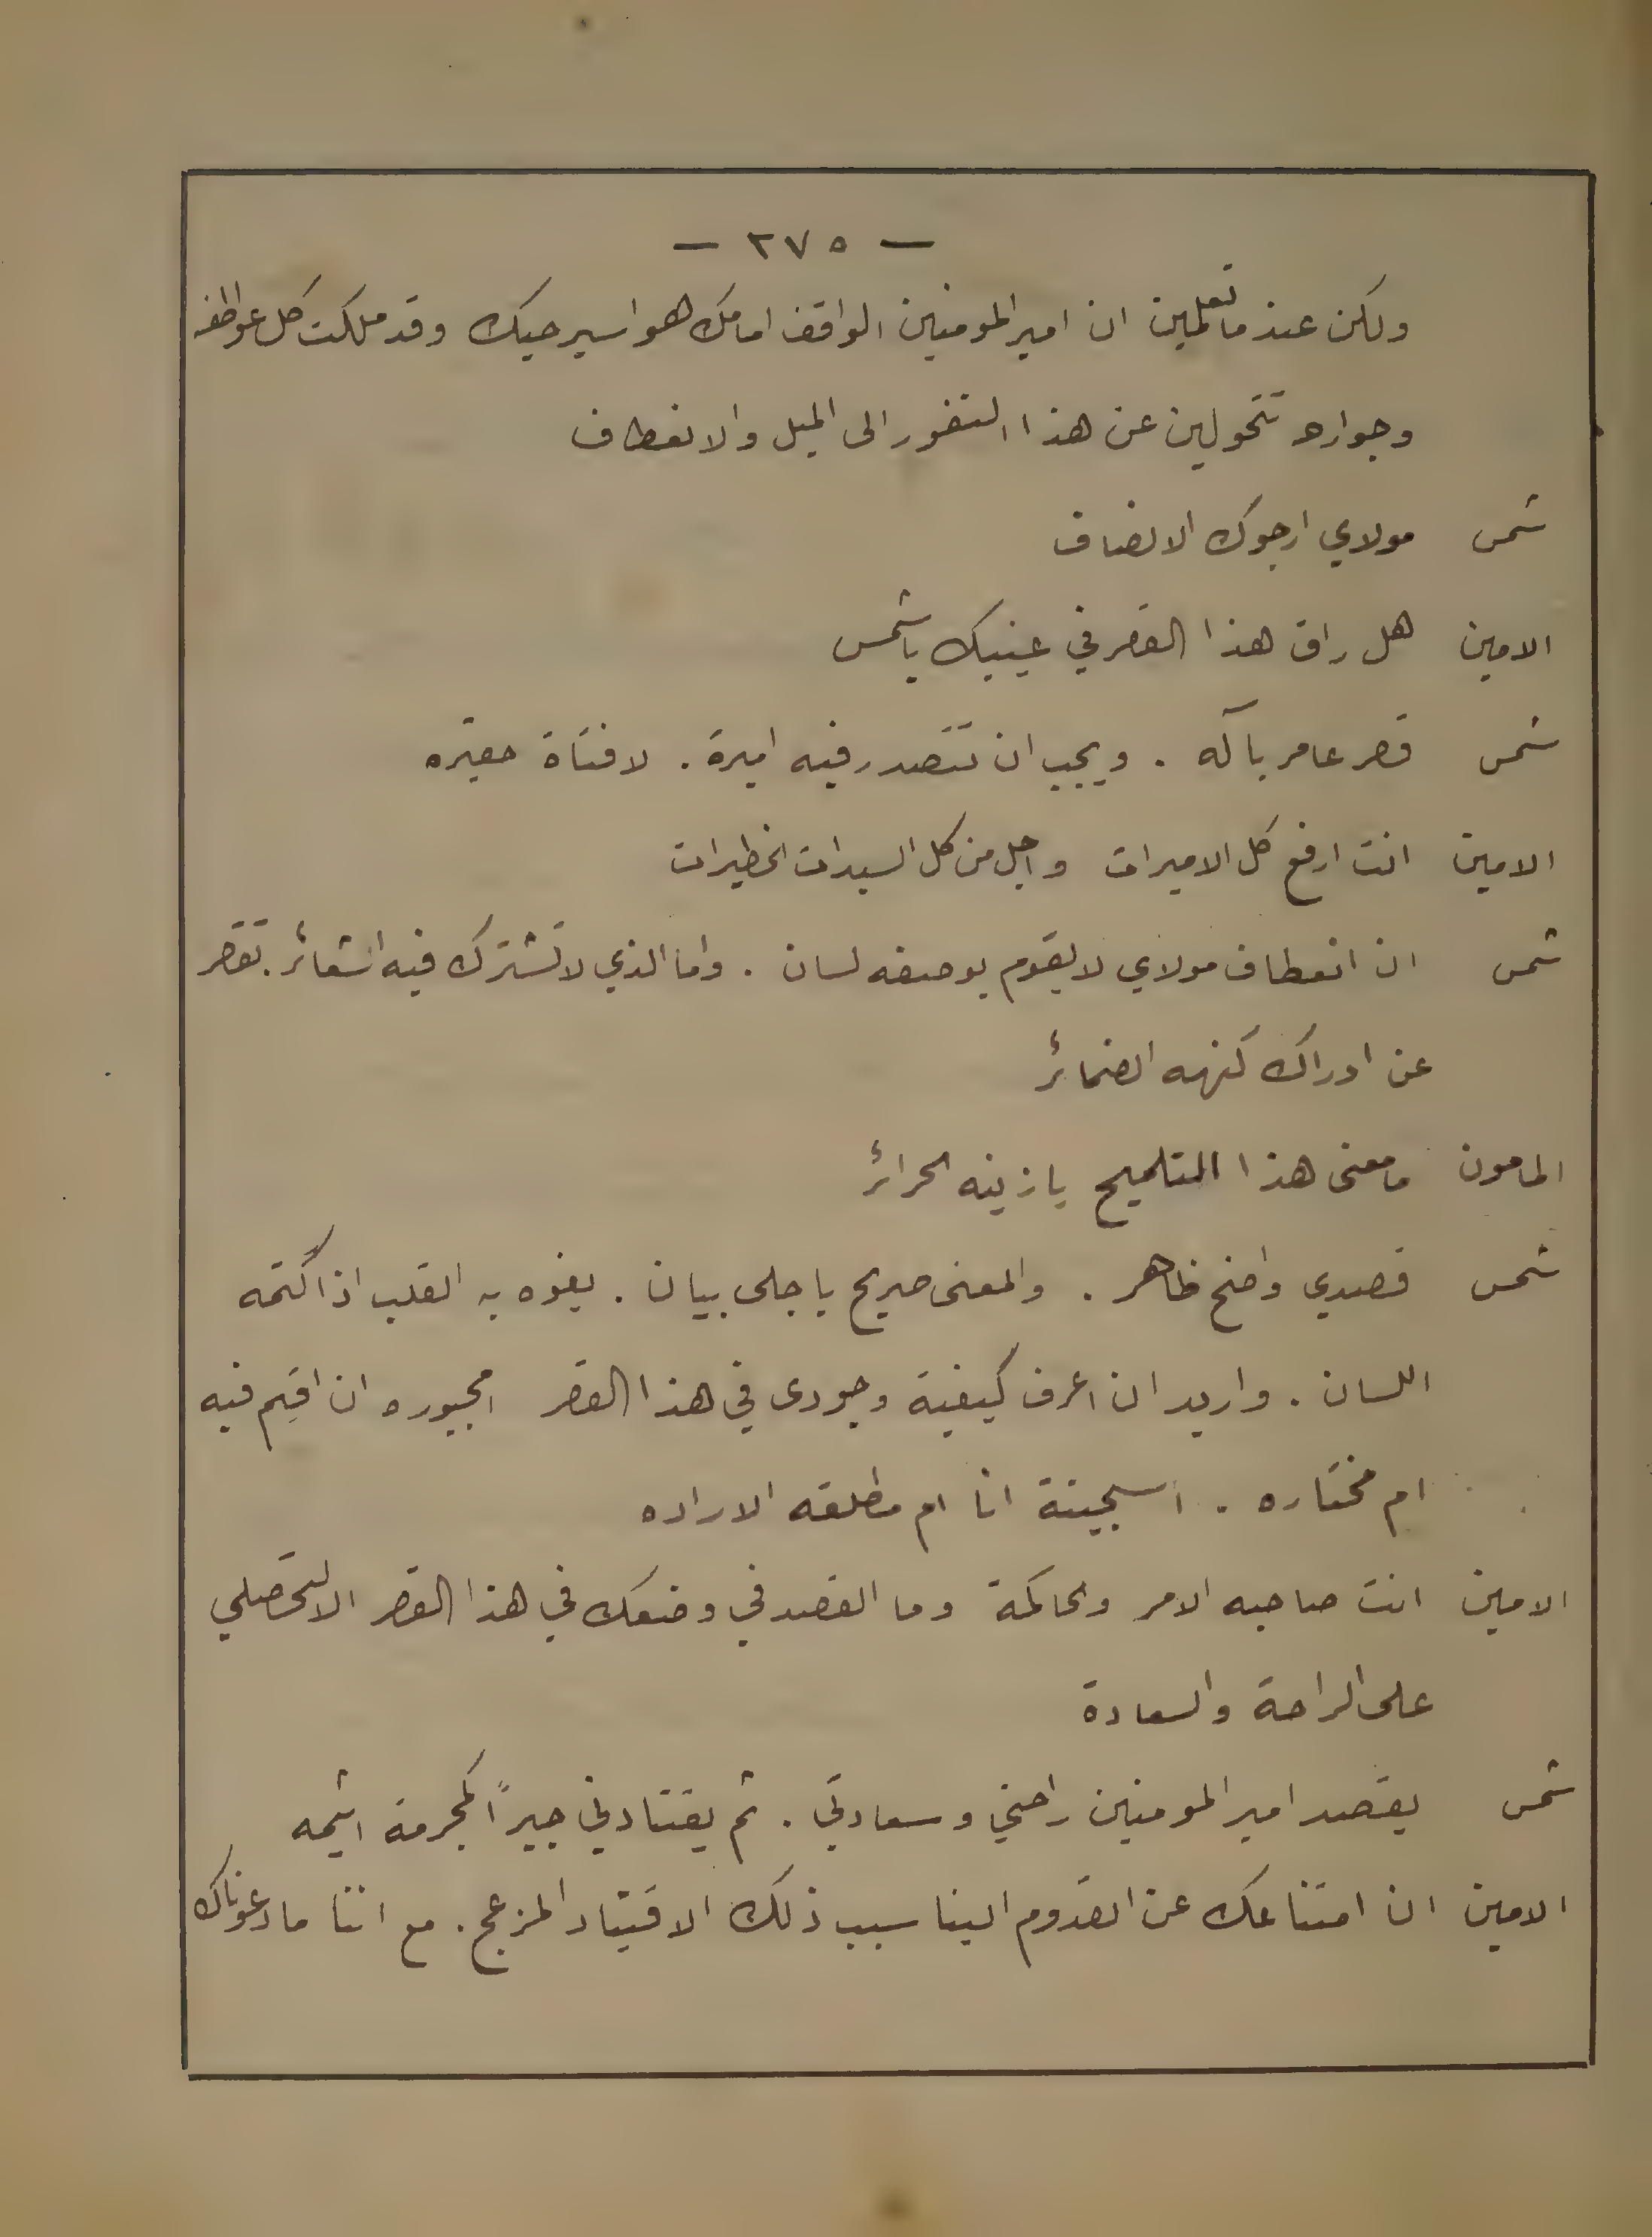 — ٢٧٥ —
ولكن عند ما تعلمين ان امير المومنين الواقف امامك هو اسير حبك وقد ملكت كل عواطفه
وجوارحه تتحولين عن هذا النفور الى الميل والانعطاف
شمس مولاي ارجوك الانصاف
الامين هل راق هذا القصر في عينيك يا شمس
شمس قصر عامر بآله . ويجب ان تتصدر فيه اميرة . لا فتاة حقيره
الامين انت ارفع كل الاميرات واجل من كل السيدات الخطيرات
شمس ان انعطاف مولاي لا يقوم بوصفه لسان . واما الذي لا تشترك فيه الشعائر . تقصر
عن ادراك كنهه الضمائر
المامون ما معنى هذا التلميح يا زينه الحرائر
شمس قصدي واضح ظاهر . والمعنى صريح باجلى بيان . يفوه به القلب اذا كتمه
اللسان . واريد ان اعرف كيفية وجودى في هذا القصر امجبوره ان اقيم فيه
ام مختاره . اسجينة انا ام مطلقه الاراده
الامين انت صاحبه الامر والحاكمة وما القصد في وضعك في هذا القصر الا لتحصلي
على الراحة والسعادة
شمس يقصد امير المومنين راحتي وسعادتي . ثم يقتادني جبراً كمجرمة اثيمه
الامين ان امتناعك عن القدوم الينا سبب ذلك الاقتياد المزعج . مع اننا ما دعوناك